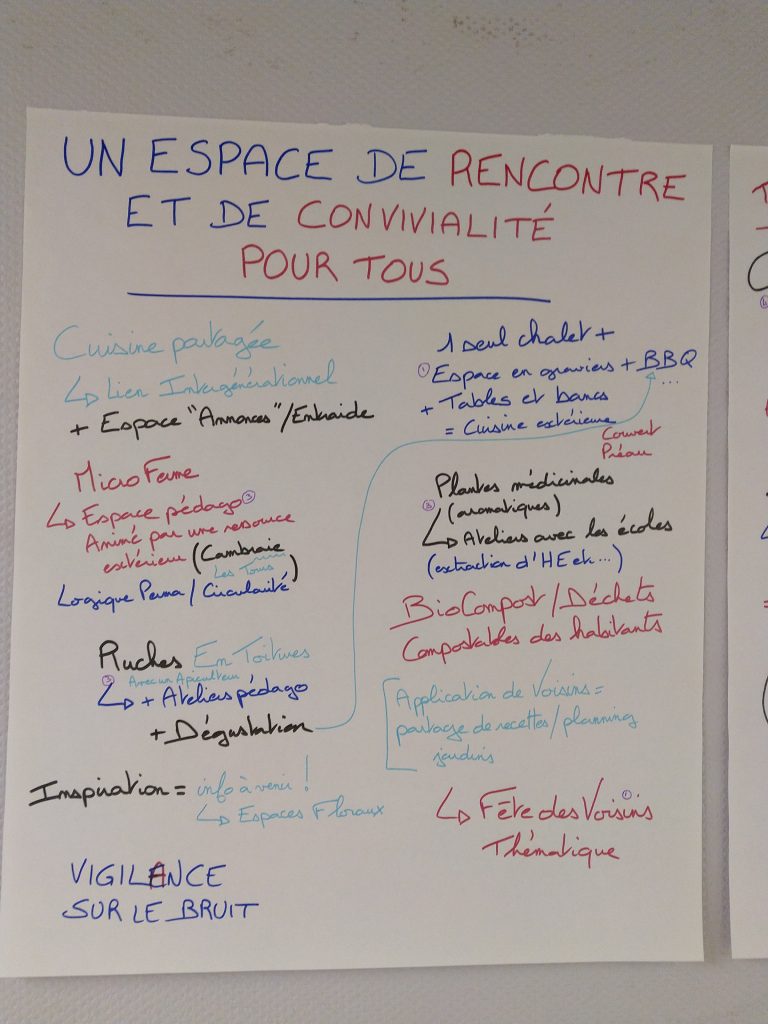 UN ESPACE DE RENCONTRE
ET DE CONVIVIALITÉ
POUR TOUS
Cuisine partagée
↳ Lien Intergénérationnel
+ Espace "Annonces"/Entraide
Micro Ferme
↳ Espace pédago ③
Animé par une ressource
extérieure (Cambraie
Les Tours)
Logique Perma / Circularité
Ruches En Toitures
② Avec un Apiculteur
↳ + Ateliers pédago
+ Dégustation
Inspiration = info à venir !
↳ Espaces Floraux
VIGILANCE
SUR LE BRUIT
1 seul chalet +
① Espace en graviers + BBQ
...
+ Tables et bancs
= Cuisine extérieure
Couvert
Préau
Plantes médicinales
(aromatiques)
↳ Ateliers avec les écoles
(extraction d'HE etc...)
BioCompost / Déchets
Compostables des habitants
Application de Voisins =
partage de recettes / planning
jardinis
↳ Fête des Voisins ①
Thématique